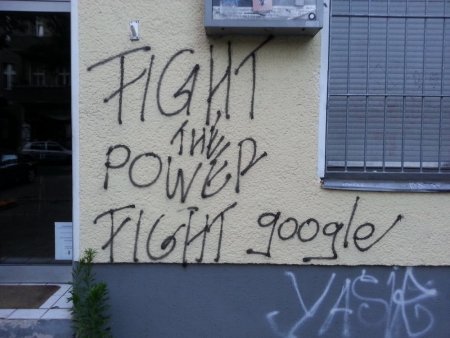 FIGHT
THE
POWER
FIGHT google